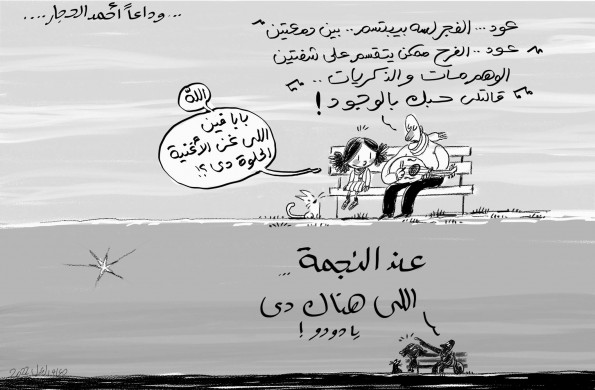 وداعاً أحمد الحجار...
عود...الفجر لسه بيبتسم.. بين دمعتين
عود...الفرح ممكن يتقسم على شفتين
الوهم مات والذكريات..
قالتلى حبك بالوجود!
الله
بابا فين
اللى غنى الأغنية
الحلوة دى؟!
عند النجمة...
اللى هناك دى
يا دودو!
2022